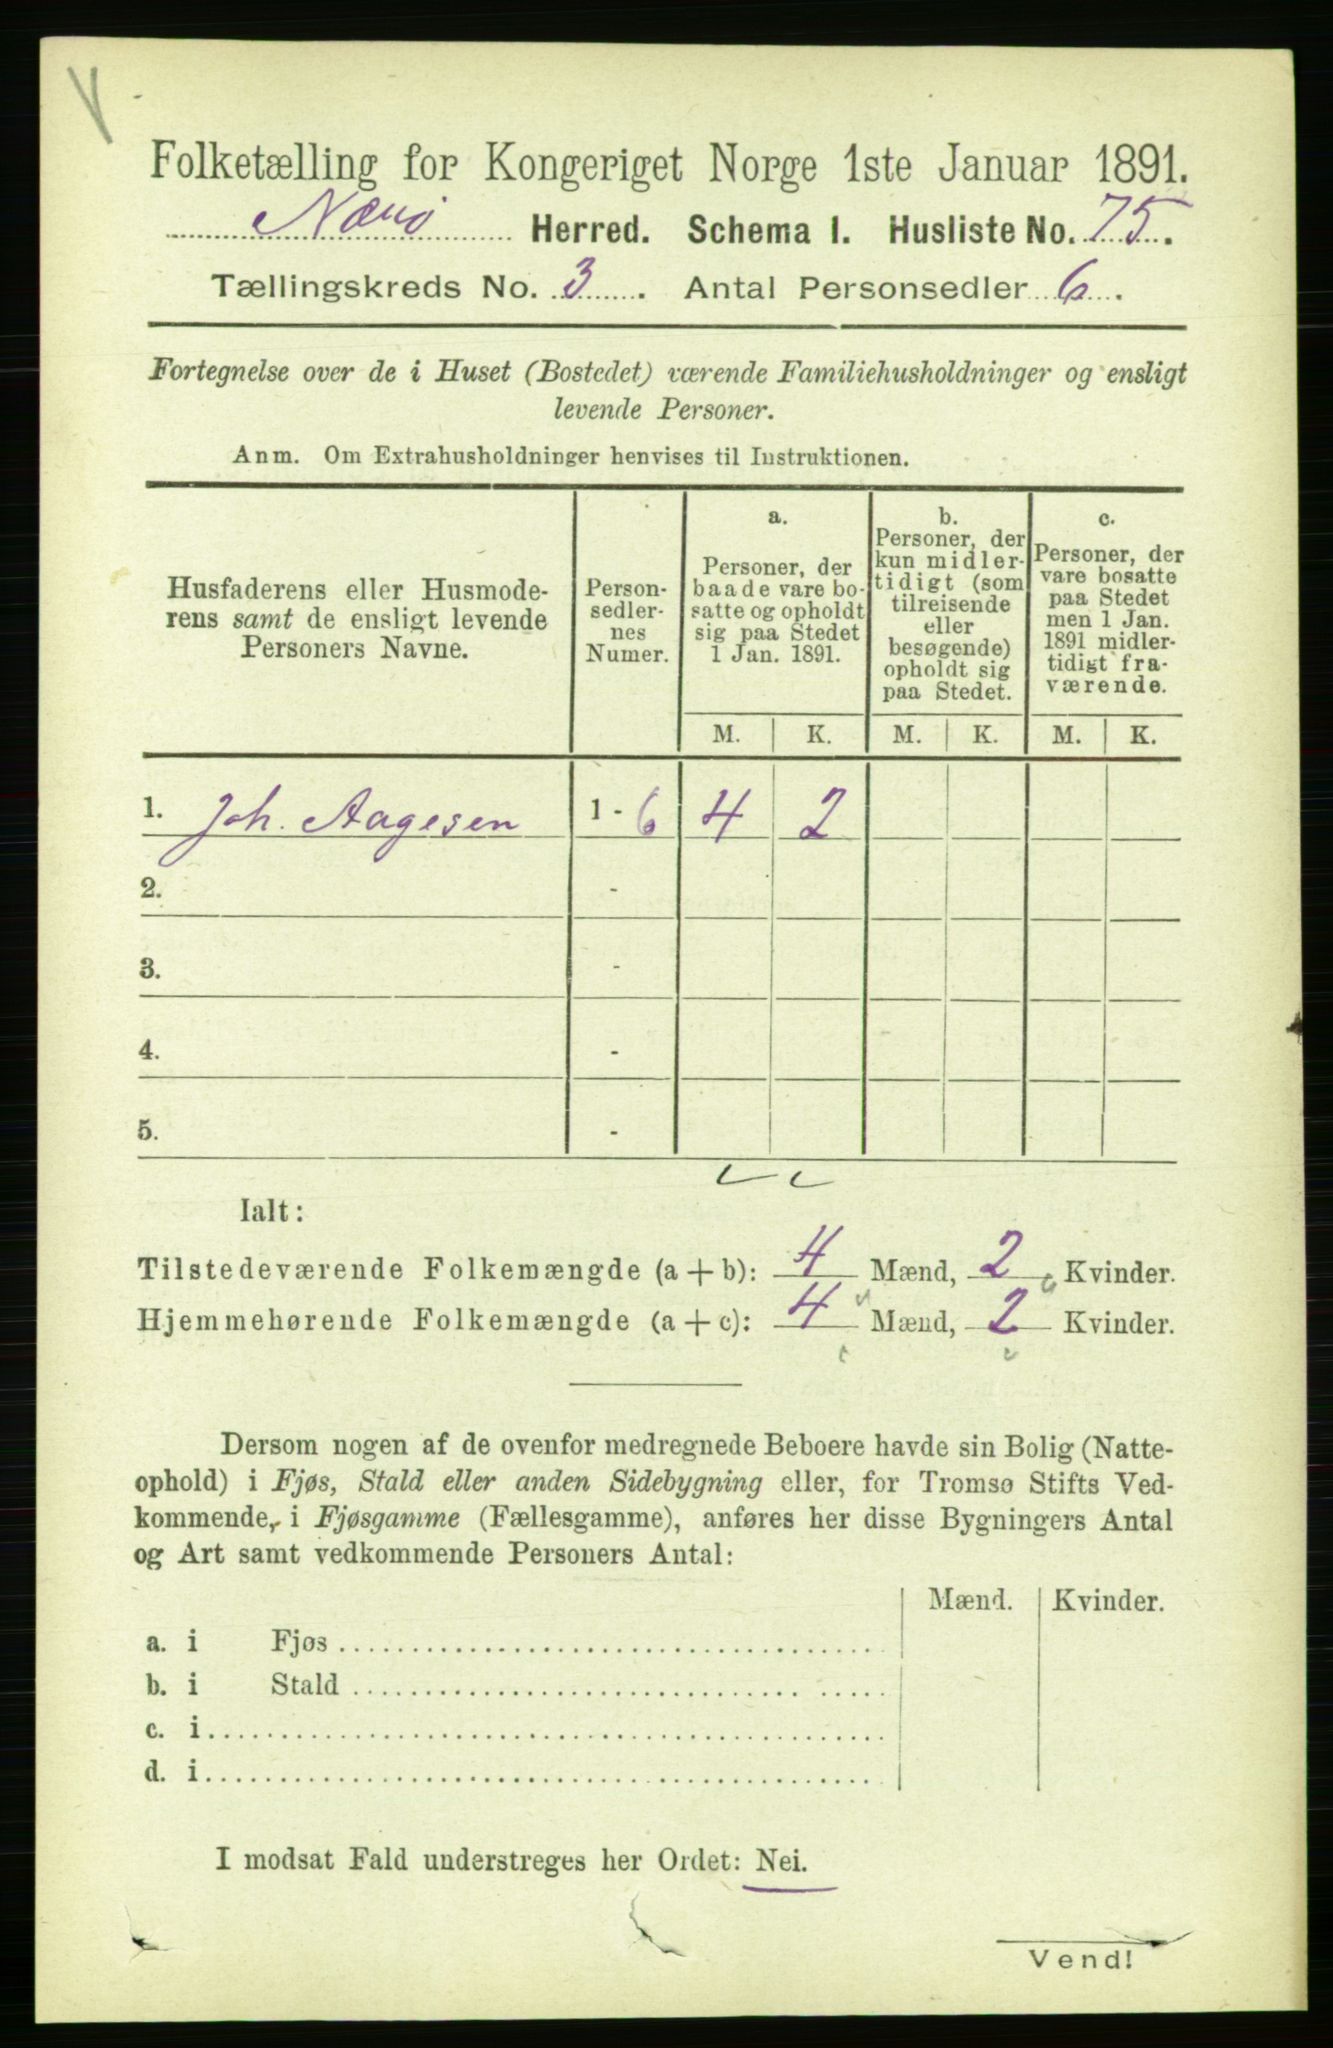 Folketælling for Kongeriget Norge 1ste Januar 1891.
Nærø Herred. Schema 1. Husliste No. 75.
Tællingskreds No. 3. Antal Personsedler 6.
Fortegnelse over de i Huset (Bostedet) værende Familiehusholdninger og ensligt
levende Personer.
Anm. Om Extrahusholdninger henvises til Instruktionen.
Husfaderens eller Husmode-
rens samt de ensligt levende
Personers Navne.
Person-
sedler-
nes
Numer.
a.
Personer, der
baade vare bo-
satte og opholdt
sig paa Stedet
1 Jan. 1891.
b.
Personer, der
kun midler-
tidigt (som
tilreisende
eller
besøgende)
opholdt sig
paa Stedet.
c.
Personer, der
vare bosatte
paa Stedet
men 1 Jan.
1891 midler-
tidigt fra-
værende.
M. K. M. K. M. K.
1. Joh. Aagesen 1 - 6 4 2
2. -
3. -
4. -
5. -
Ialt:
Tilstedeværende Folkemængde (a + b): 4 Mænd, 2 Kvinder.
Hjemmehørende Folkemængde (a + c): 4 Mænd, 2 Kvinder.
Dersom nogen af de ovenfor medregnede Beboere havde sin Bolig (Natte-
ophold) i Fjøs, Stald eller anden Sidebygning eller, for Tromsø Stifts Ved-
kommende, i Fjøsgamme (Fællesgamme), anføres her disse Bygningers Antal
og Art samt vedkommende Personers Antal:
Mænd. Kvinder.
a. i Fjøs
b. i Stald
c. i
d. i
I modsat Fald understreges her Ordet: Nei.
Vend!